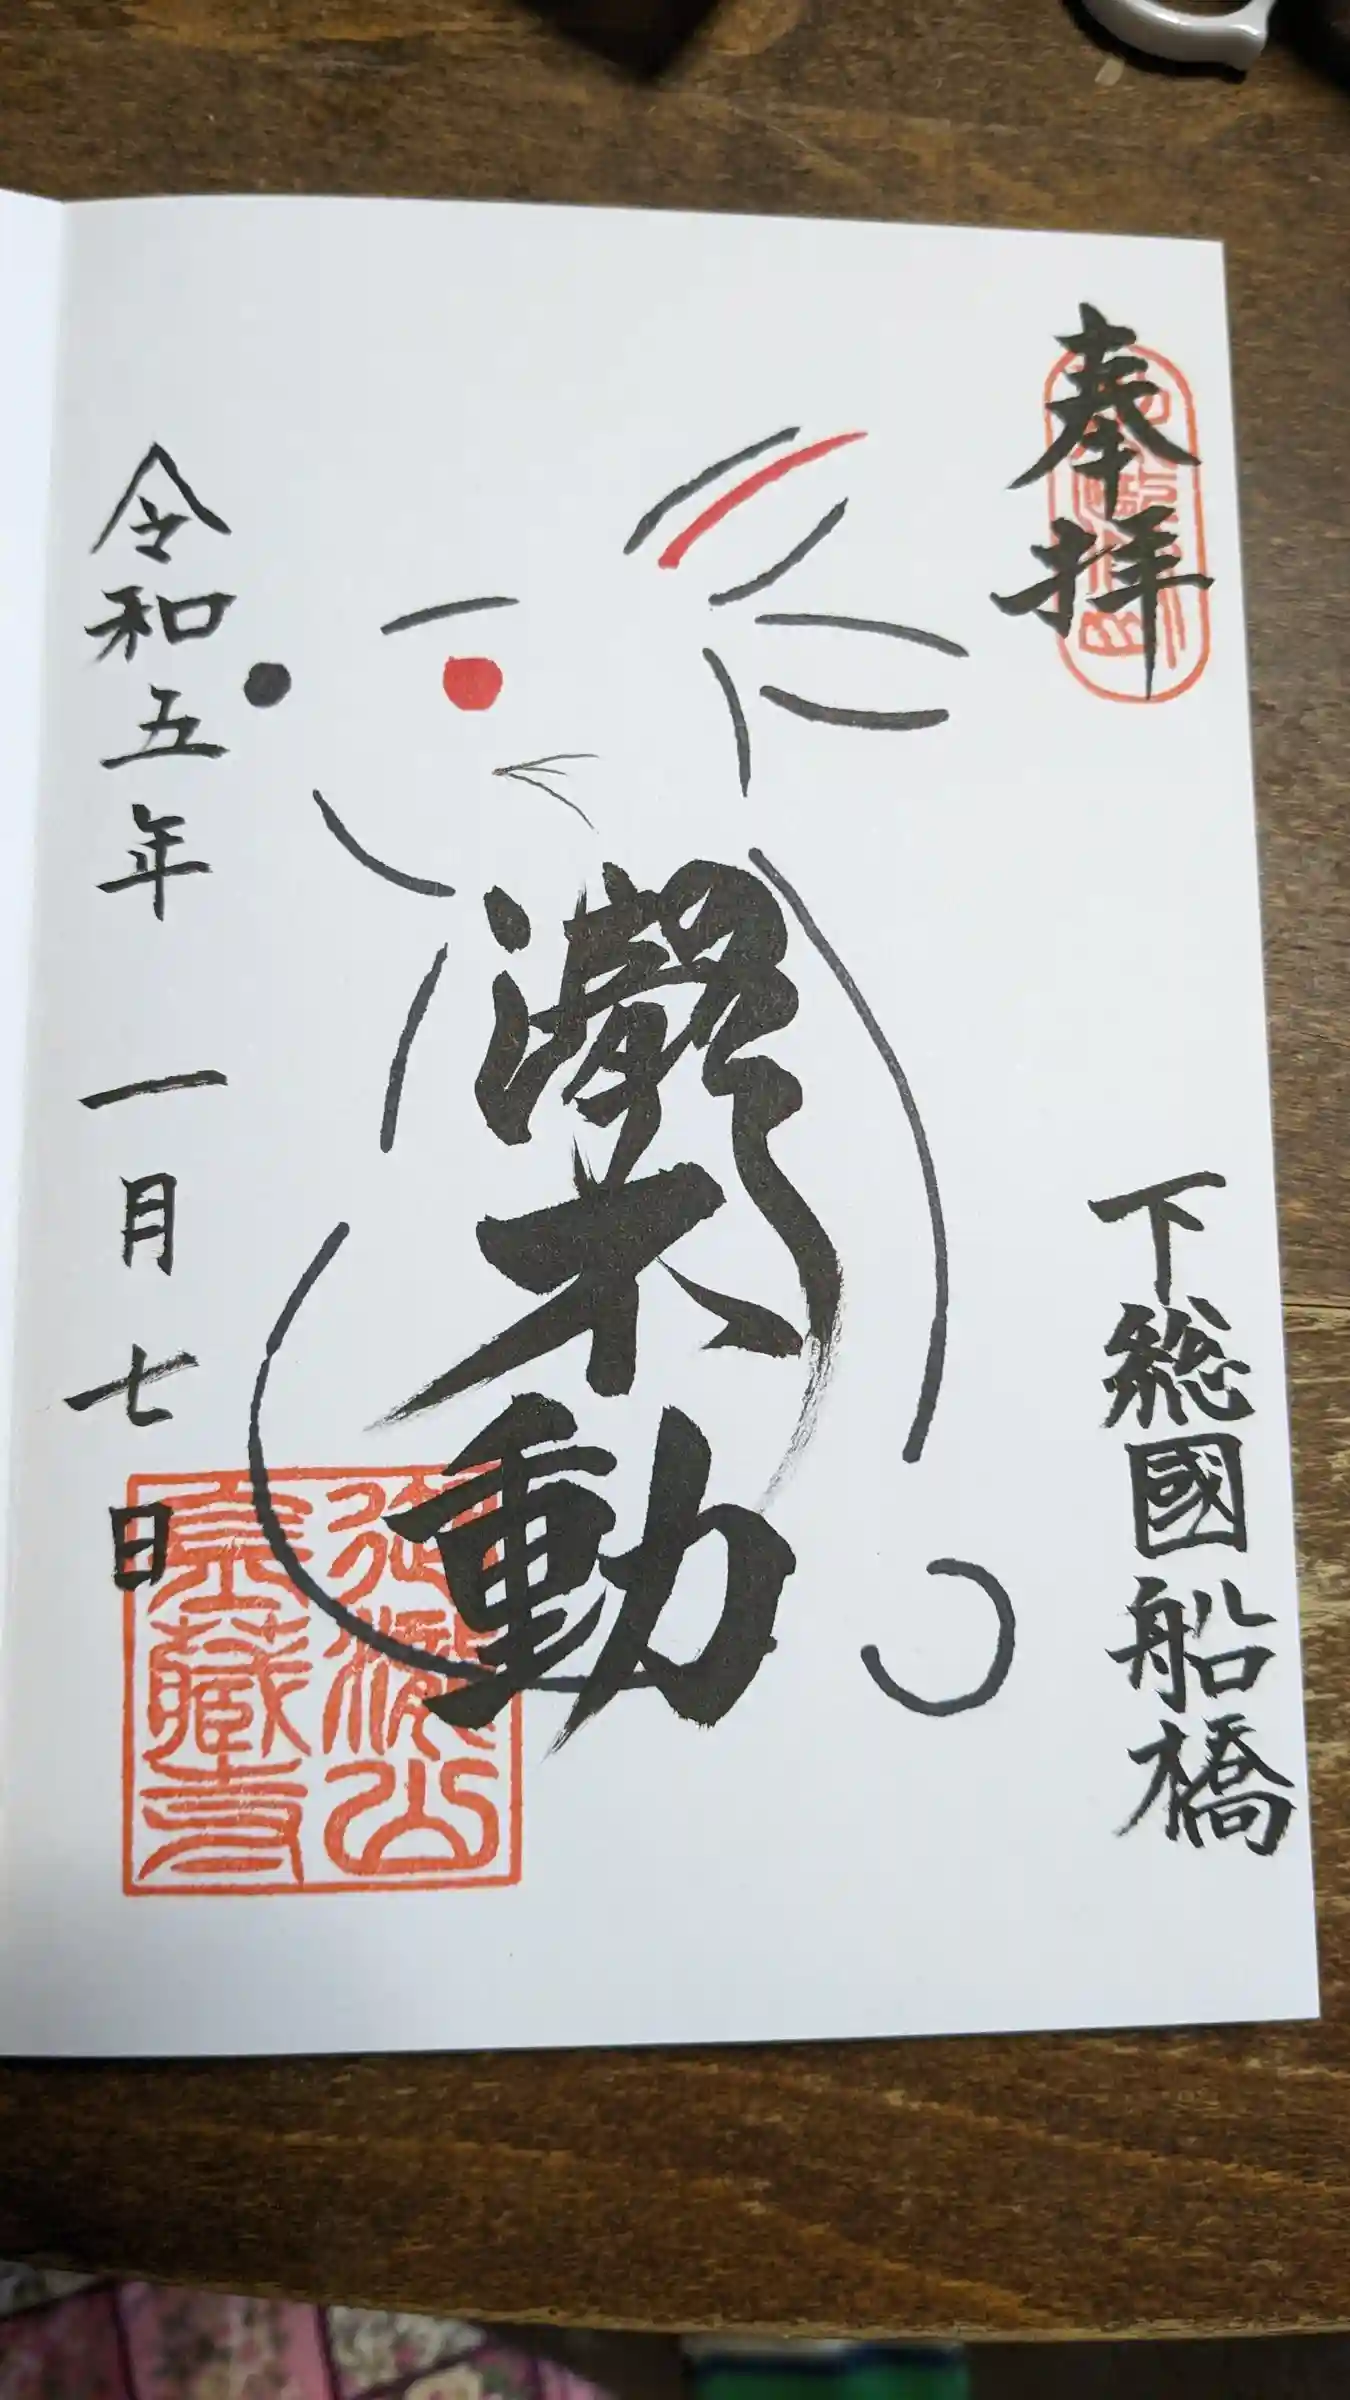 奉拝
下総國船橋
瀧不動
令和五年 一月七日
御瀧山
金藏寺